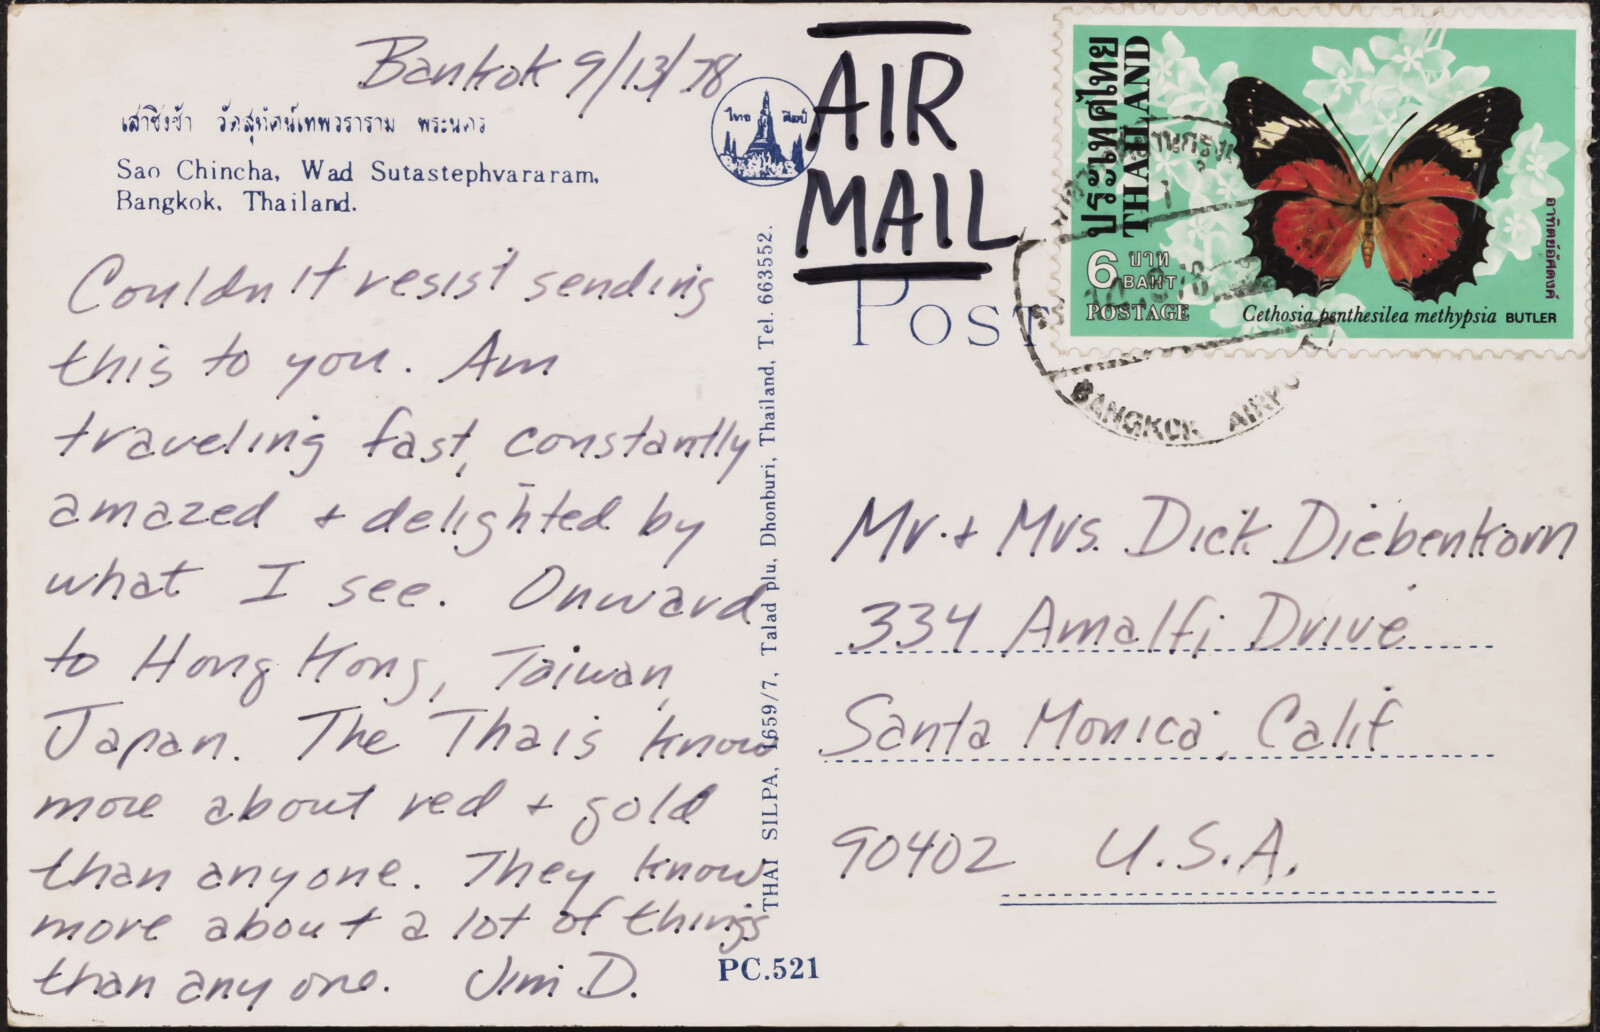 Bankok 9/13/78
เสาชิงช้า วัดสุทัศน์เทพวราราม พระนคร
Sao Chincha, Wad Sutastephvararam,
Bangkok, Thailand.
ไทย ศิลป์
Couldn't resist sending
this to you. Am
traveling fast, constantly
amazed + delighted by
what I see. Onward
to Hong Kong, Taiwan,
Japan. The Thais know
more about red + gold
than anyone. They know
more about a lot of things
than anyone. Jim D.
THAI SILPA, 1659/7, Talad plu, Dhonburi, Thailand, Tel. 663552.
PC.521
AIR
MAIL
POST
ประเทศไทย
THAILAND
6 บาท
BAHT
POSTAGE
Cethosia penthesilea methypsia BUTLER
อาทิตย์อัสดงค์
BANGKOK AIRPO
Mr. + Mrs. Dick Diebenkorn
334 Amalfi Drive
Santa Monica, Calif
90402 U.S.A.